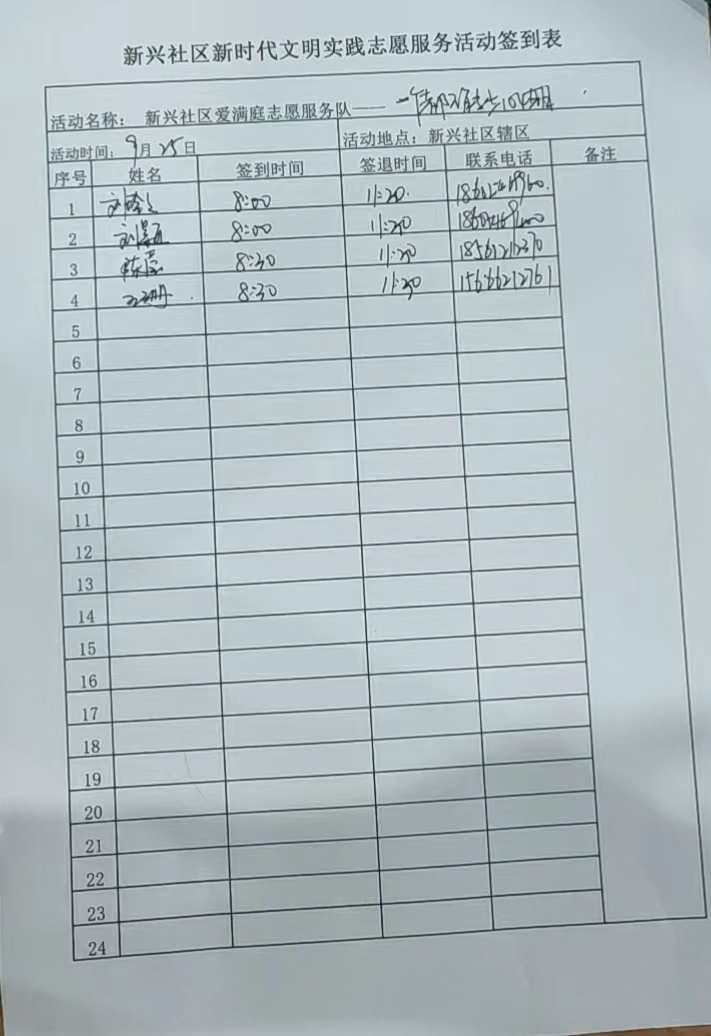 新兴社区新时代文明实践志愿服务活动签到表
活动名称： 新兴社区爱满庭志愿服务队——
活动时间：9月25日 活动地点：新兴社区辖区
序号 姓名 签到时间 签退时间 联系电话 备注
1 8:00 11:20
2 8:00 11:20
3 8:30 11:20 18561212370
4 8:30 11:30 15666212761
5
6
7
8
9
10
11
12
13
14
15
16
17
18
19
20
21
22
23
24